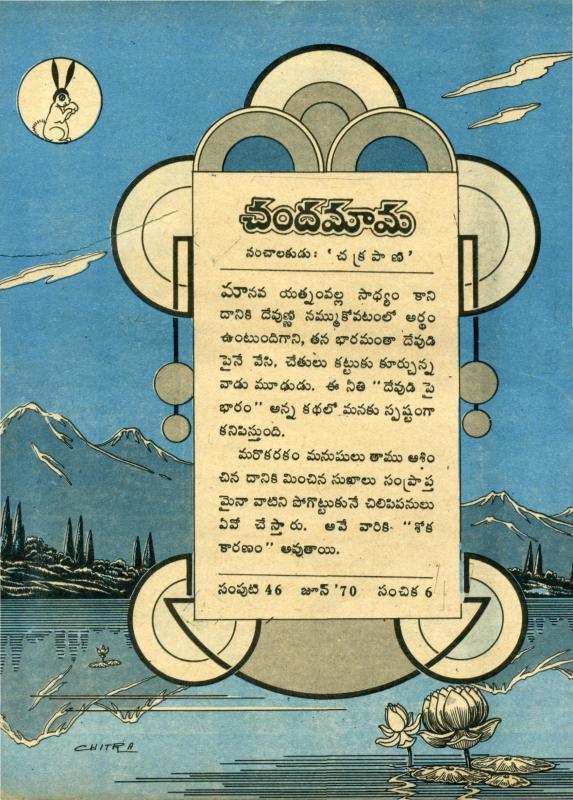 చందమామ
సంచాలకుడు: 'చక్రపాణి'
మానవ యత్నంవల్ల సాధ్యం కాని
దానికి దేవుణ్ణి నమ్ముకోవటంలో అర్థం
ఉంటుందిగాని, తన భారమంతా దేవుడి
పైనే వేసి, చేతులు కట్టుకు కూర్చున్న
వాడు మూఢుడు. ఈ నీతి "దేవుడి పై
భారం" అన్న కథలో మనకు స్పష్టంగా
కనిపిస్తుంది.
మరొకరకం మనుషులు తాము ఆశిం
చిన దానికి మించిన సుఖాలు సంప్రాప్త
మైనా వాటిని పోగొట్టుకునే చిలిపిపనులు
ఏవో చేస్తారు. అవే వారికి "శోక
కారణం" అవుతాయి.
సంపుటి 46 జూన్ '70 సంచిక 6
CHITRA